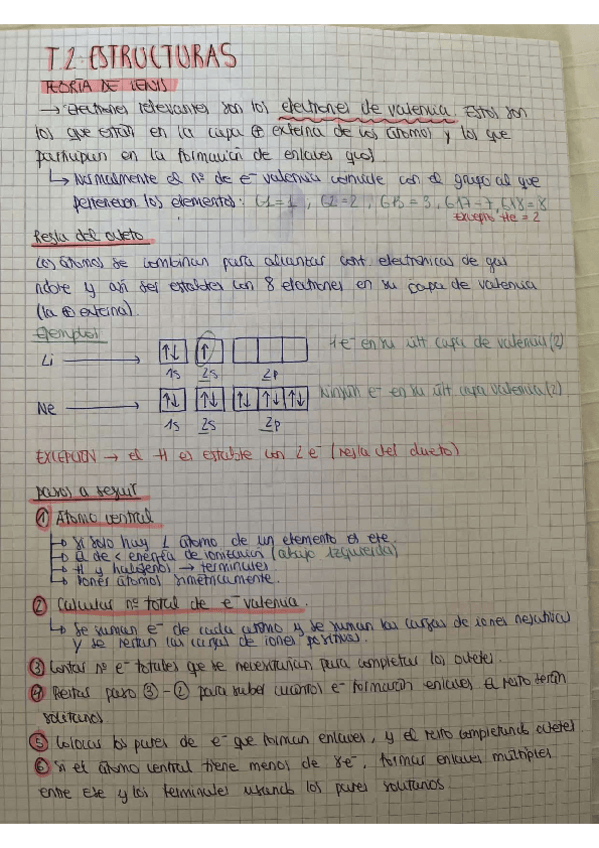 T.2. ESTRUCTURAS
TEORÍA DE LEWIS
→ Electrones relevantes son los electrones de valencia. Estos son
los que están en la capa ⊕ externa de los átomos y los que
participan en la formación de enlaces
↳ Normalmente el nº de e⁻ valencia coincide con el grupo al que
pertenecen los elementos: G1=1, G2=2, G13=3, G17=7, G18=8
Excepto He=2
Regla del octeto
Los átomos se combinan para alcanzar conf. electrónicas de gas
noble y así ser estables con 8 electrones en su capa de valencia
(la ⊕ externa).
Ejemplos
Li → ↑↓ ↑ 1 e⁻ en su últ capa de valencia (2)
1s 2s 2p
Ne → ↑↓ ↑↓ ↑↓ ↑↓ ↑↓ Ningún e⁻ en su últ capa valencia (2)
1s 2s 2p
EXCEPCIÓN → el H es estable con 2 e⁻ (regla del dueto)
pasos a seguir
① Átomo central
↳ si solo hay 1 átomo de un elemento es ese.
↳ El de < energía de ionización (abajo izquierda)
↳ H y halógenos → terminales.
↳ Poner átomos simétricamente.
② Calcular nº total de e⁻ valencia.
↳ Se suman e⁻ de cada átomo y se suman las cargas de iones negativas
y se restan las cargas de iones positivas.
③ Contar nº e⁻ totales que se necesitarían para completar los octetes.
④ Restar paso ③-② para saber cuántos e⁻ formarán enlaces. El resto serán
solitarios
⑤ Colocar los pares de e⁻ que forman enlaces, y el resto completando octetes
⑥ Si el átomo central tiene menos de 8e⁻, formar enlaces múltiples
entre ese y los terminales usando los pares solitarios.